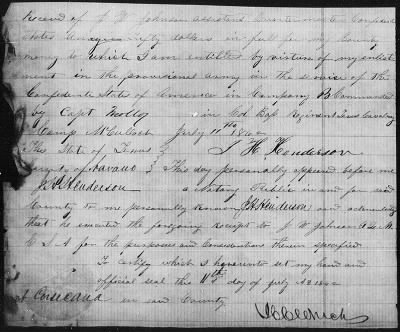 Received of J W Johnson assistant Quartermaster Confederate
States army fifty dollars in full for my bounty
money to which I am entitled by virtue of my enlist
ment in the provisional army in the service of the
Confederate States of America in Company B Commanded
by Capt in Col Bass Regiment Texas Cavalry
Camp McCulloch July 11th 1862
The State of Texas J H Henderson
County of Navarro This day personally appeared before me
J H Henderson a Notary Public in and for said
County to me personally known J H Henderson and acknowledg
that he executed the foregoing receipt to J W Johnson A Q M
C S A for the purposes and Considerations therein specified
To certify which I hereunto set my hand and
official seal this 11th day of July AD 1862
at Corsicana in said County